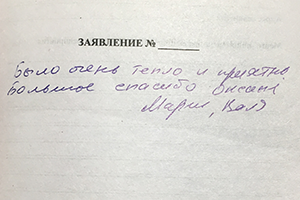 ЗАЯВЛЕНИЕ № ______
Было очень тепло и приятно
Большое спасибо Оксане
Мария, Валя